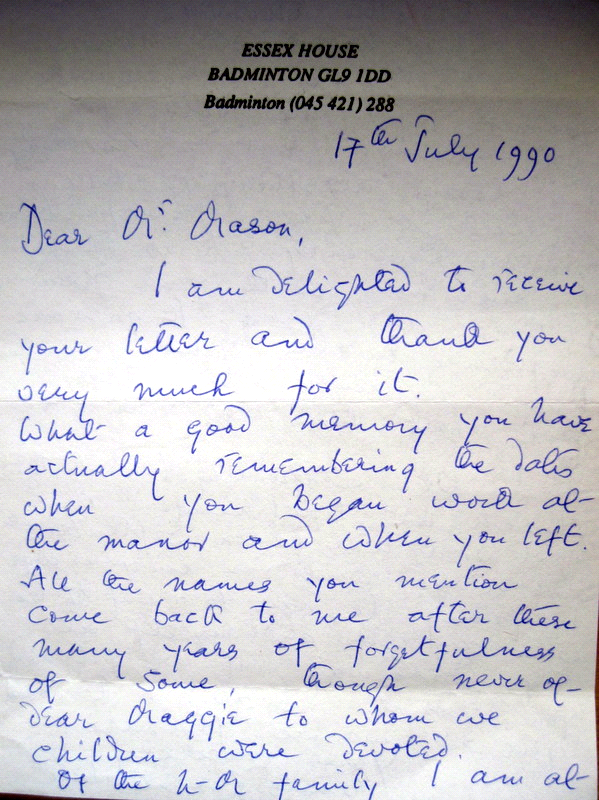 ESSEX HOUSE
BADMINTON GL9 1DD
Badminton (045 421) 288
17th July 1990
Dear Mr. Mason,
I am delighted to receive
your letter and thank you
very much for it.
What a good memory you have
actually remembering the dates
when you began work at
the manor and when you left.
All the names you mention
come back to me after these
many years of forgetfulness
of some, though never of
dear Maggie to whom we
children were devoted.
Of the L-M family I am al-